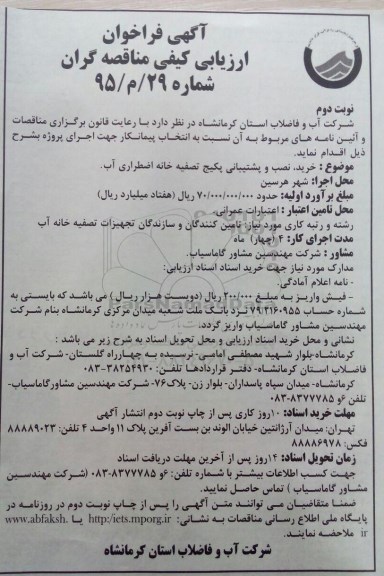 آگهی فراخوان
ارزیابی کیفی مناقصه گران
شماره ۲۹/م/۹۵
نوبت دوم
شرکت آب و فاضلاب استان کرمانشاه در نظر دارد با رعایت قانون برگزاری مناقصات
و آئین نامه های مربوط به آن نسبت به انتخاب پیمانکار جهت اجرای پروژه بشرح
ذیل اقدام نماید.
موضوع : خرید، نصب و پشتیبانی پکیج تصفیه خانه اضطراری آب.
محل اجرا: شهر هرسین
مبلغ برآورد اولیه: حدود ۷۰/۰۰۰/۰۰۰/۰۰۰ ریال (هفتاد میلیارد ریال)
محل تامین اعتبار : اعتبارات عمرانی
رشته و رتبه کاری مورد نیاز: تامین کنندگان و سازندگان تجهیزات تصفیه خانه آب
مدت اجرای کار: ۴ (چهار) ماه
مشاور : شرکت مهندسین مشاور گاماسیاب.
مدارک مورد نیاز جهت خرید اسناد اسناد ارزیابی:
- نامه اعلام آمادگی.
- فیش واریز به مبلغ ۲۰۰/۰۰۰ ریال (دویست هزار ریال) می باشد که بایستی به
شماره حساب ۷۹/۲۱۶۰۹۵۵ نزد بانک ملت شعبه میدان مرکزی کرمانشاه بنام شرکت
مهندسین مشاور گاماسیاب واریز گردد.
نشانی و محل خرید اسناد ارزیابی و محل تحویل اسناد به شرح زیر می باشد :
کرمانشاه-بلوار شهید مصطفی امامی- نرسیده به چهارراه گلستان- شرکت آب و
فاضلاب استان کرمانشاه- دفتر قراردادها تلفن: ۳۸۲۵۴۹۳۰-۰۸۳
کرمانشاه- میدان سپاه پاسداران- بلوار زن- پلاک۷۶- شرکت مهندسین مشاورگاماسیاب-
تلفن ۶و ۸۳۷۷۷۸۵-۰۸۳
مهلت خرید اسناد: ۱۰روز کاری پس از چاپ نوبت دوم انتشار آگهی
تهران: میدان آرژانتین خیابان الوند بن بست آفرین پلاک ۱۱ واحد ۴ تلفن: ۸۸۸۸۹۰۲۳
فکس: ۸۸۸۸۶۹۷۸
زمان تحویل اسناد: ۱۴روز پس از آخرین مهلت دریافت اسناد
جهت کسب اطلاعات بیشتر با شماره تلفن: ۶و ۸۳۷۷۷۸۵-۰۸۳ (شرکت مهندسین
مشاور گاماسیاب ) تماس حاصل نمایید.
ضمنا متقاضیان می توانند متن آگهی را پس از چاپ نوبت دوم در روزنامه در
پایگاه ملی اطلاع رسانی مناقصات به نشانی: http:/iets.mporg.ir یا www.abfaksh.
ir ملاحظه نمایند.
شرکت آب و فاضلاب استان کرمانشاه